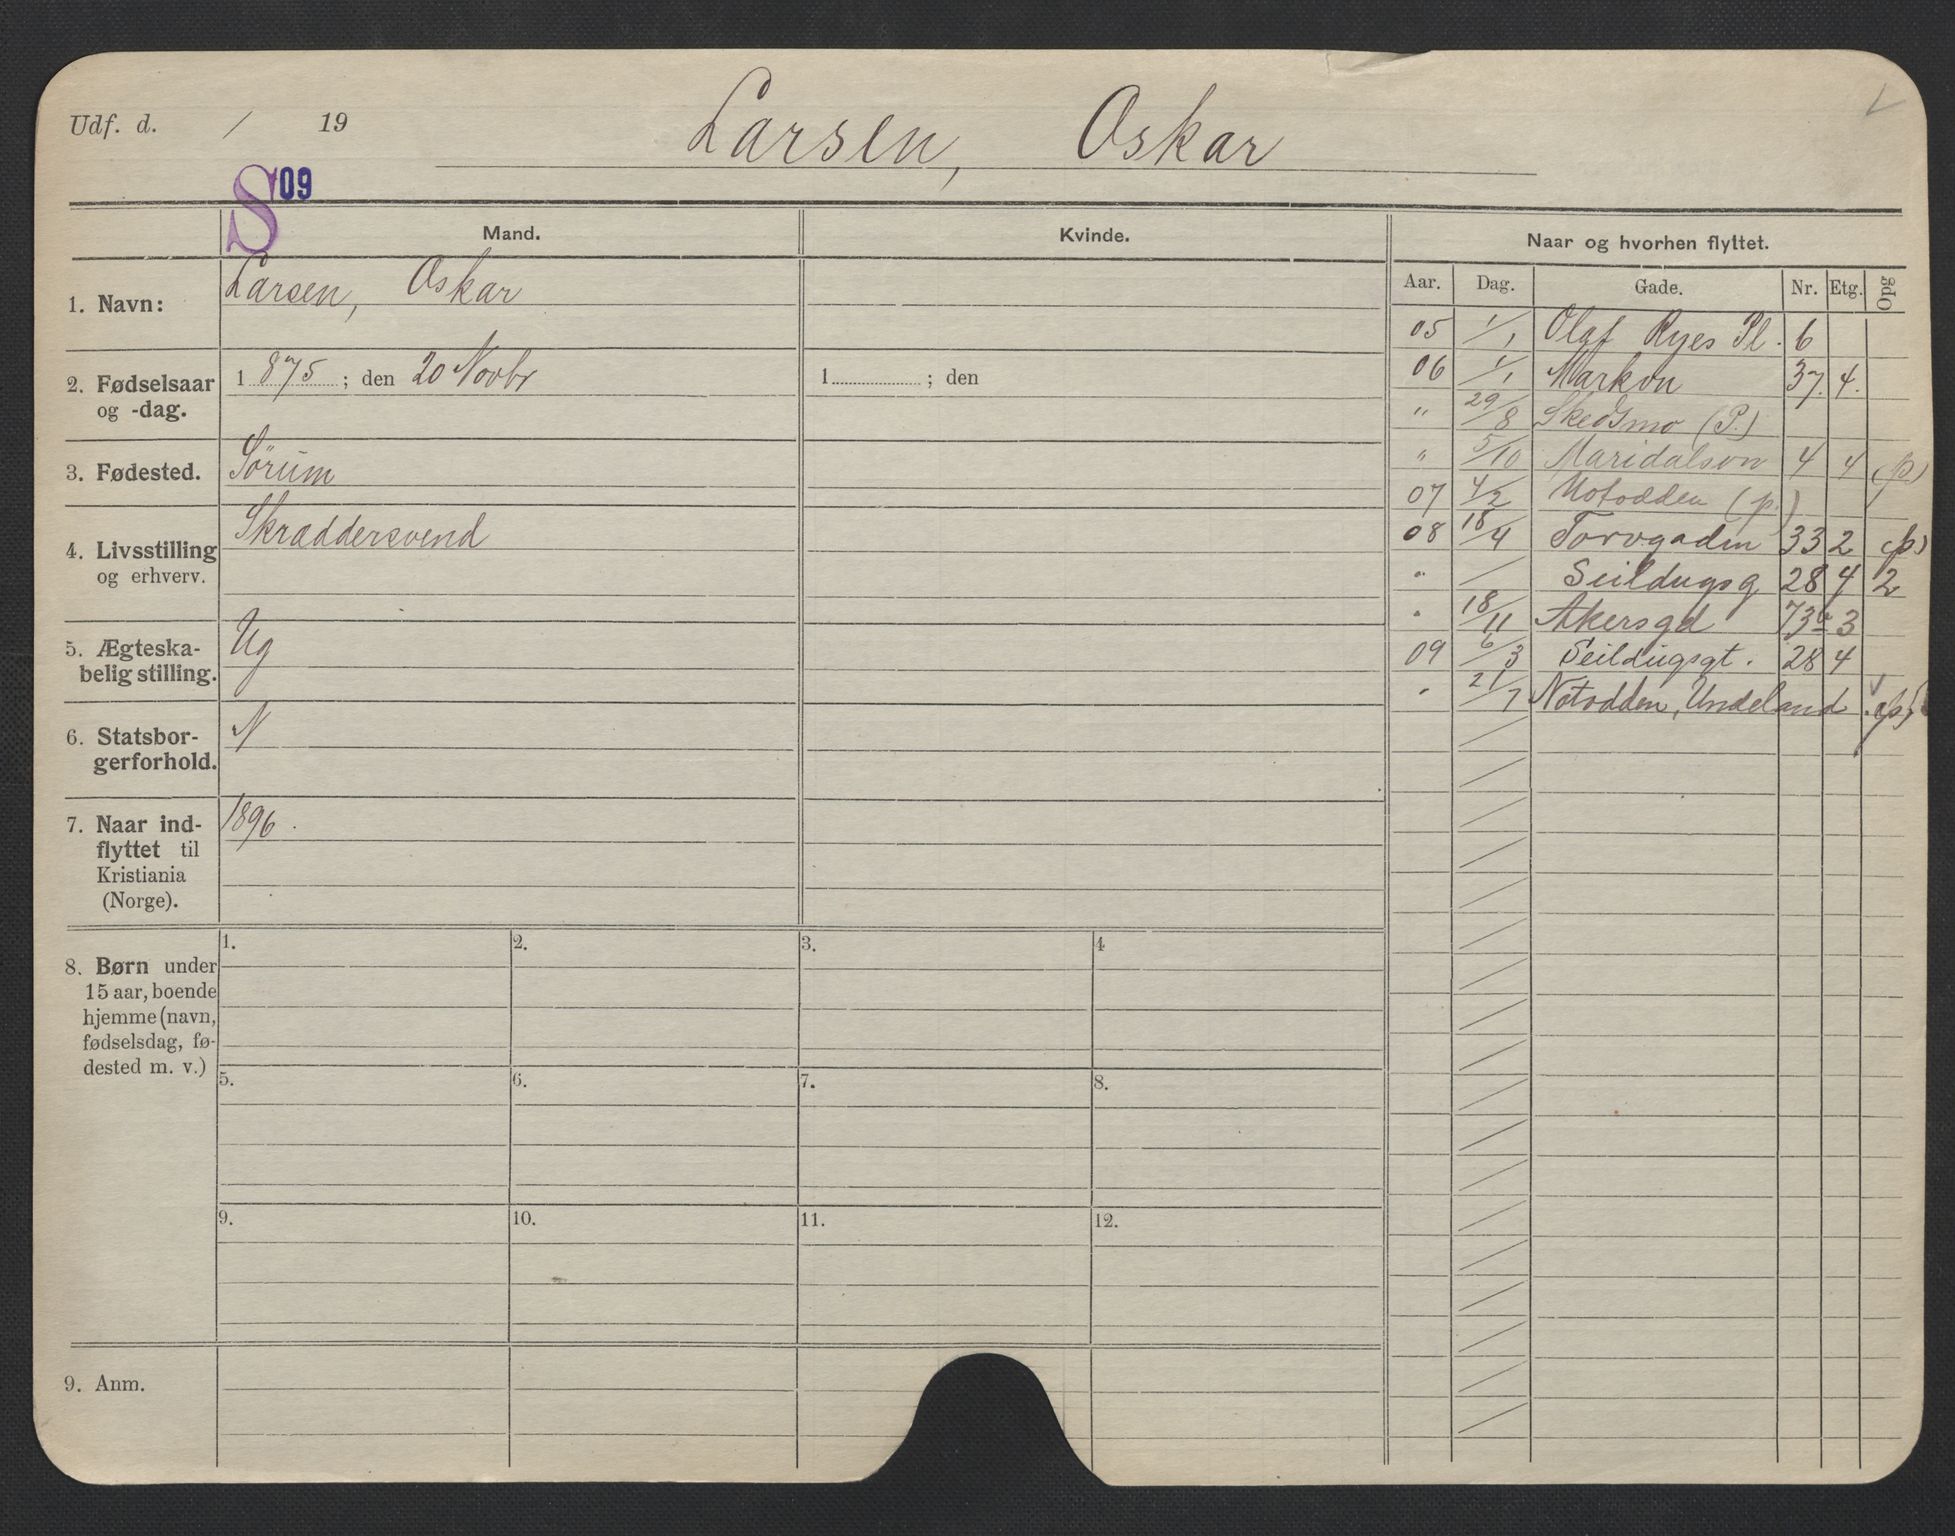 Udf. d. / 19
Larsen, Oskar
S 09
Mand.
Kvinde.
Naar og hvorhen flyttet.
Aar. Dag. Gade. Nr. Etg. Opg
1. Navn: Larsen, Oskar
2. Fødselsaar og -dag. 1 875 ; den 20 Novbr
1 ; den
3. Fødested. Sørum
4. Livsstilling og erhverv. Skræddersvend
5. Ægteska-
belig stilling. Ug
6. Statsbor-
gerforhold. N
7. Naar ind-
flyttet til
Kristiania
(Norge). 1896.
05 1/1 Olaf Ryes Pl. 6
06 1/1 Markvn 37. 4.
" 29/8 Skedsmo (P.)
" 5/10 Maridalsvn 4 4 (p.)
07 4/2 Notodden (p.)
08 18/4 Torvgaden 33 2 (p)
" / Seildugsg 28 4 2
" 18/11 Akersgd 73a 3
09 6/3 Seildugsgt. 28 4
" 21/7 Notodden, Undeland (p)
8. Børn under
15 aar, boende
hjemme (navn,
fødselsdag, fø-
dested m. v.)
1. 2. 3. 4
5. 6. 7. 8.
9. 10. 11. 12.
9. Anm.